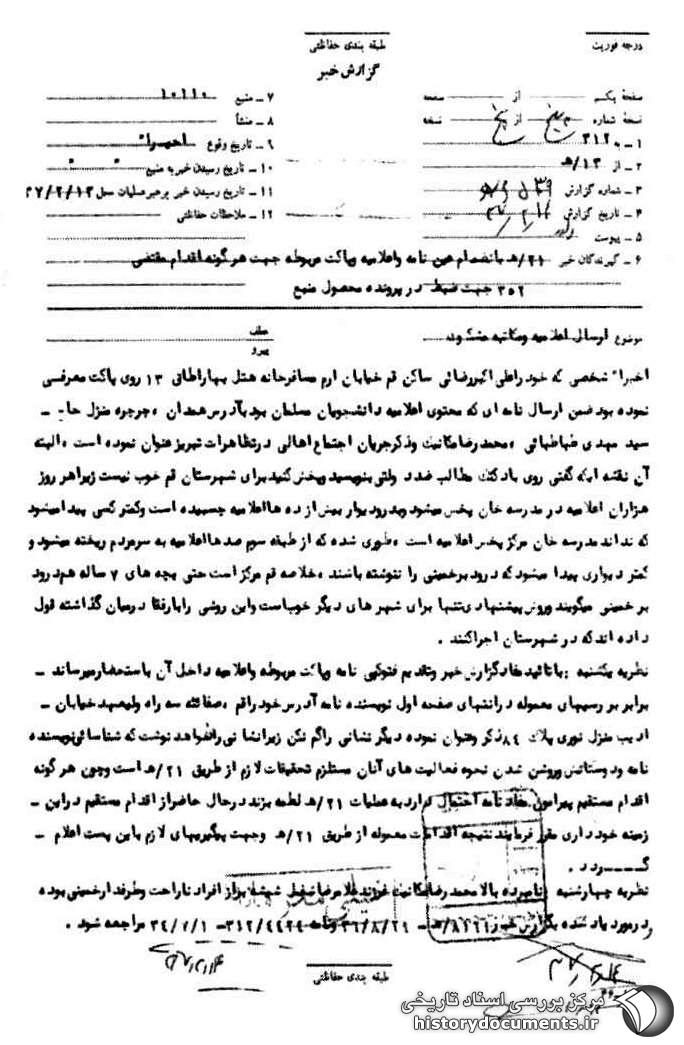 درجه فوریت
طبقه بندی حفاظتی
گزارش خبر
صفحهٔ یکم از صفحه
نسخهٔ شماره از پنج نسخه
۱ ـ به ۳۱۲
۲ ـ از ۱۲/ﻫ
۳ ـ شماره گزارش
۴ ـ تاریخ گزارش
۵ ـ پیوست
۶ ـ گیرندگان خبر ۲۱/ﻫ بانضمام عین نامه واعلامیه وپاکت مربوطه جهت هرگونه اقدام مقتضی
۳۵۲ جهت ضبط در پرونده محصول منبع
۷ ـ منبع ۱۰۱۱۰
۸ ـ منشأ
۹ ـ تاریخ وقوع اخیراً
۱۰ ـ تاریخ رسیدن خبر به منبع " "
۱۱ ـ تاریخ رسیدن خبر برهبر عملیات محل ۳۷/۲/۱۳
۱۲ ـ ملاحظات حفاظتی
موضوع ارسال اعلامیه ومکاتبه مشکوک
عطف
پیرو
اخیراً شخصی که خود راعلی اکبررضائی ساکن قم خیابان ارم مسافرخانه هتل بهاراطاق ۱۳ روی پاکت معرفـی
نموده بود ضمن ارسال نامه ای که محتوی اعلامیه دانشجویان مسلمان بود بآدرس همدان ، چرچره منزل حاج ـ
سید مهدی طباطبائی ، محمد رضا مکانیت وذکرجریان اجتماع اهالی درتظاهرات تبریز عنوان نموده است ، البته
آن نقشه ایکه گفتی روی بادکنک مطالب ضد دولتی بنویسید وپخش کنید برای شهرستان قم خوب نیست زیراهر روز
هزاران اعلامیه در مدرسه خان پخش میشود وبدرودیوار بیش از ده هااعلامیه چسبیده است وکمتر کسی پیدامیشود
که نداند مدرسه خان مرکز پخش اعلامیه است ، طوری شده که از طبقه سوم صدهااعلامیه به سرمردم ریخته میشود و
کمتر دیواری پیدا میشود که درود برخمینی را ننوشته باشند ، خلاصه قم مرکز است حتی بچه های ۷ ساله هم درود
بر خمینی میگویند وروش پیشنهادی تنها برای شهر های دیگر خوباست واین روشی رابارفقا درمیان گذاشته قول
داده اند که در شهرستان اجراکنند .
نظریه یکشنبه : باتائید مفاد گزارش خبر وتقدیم فتوکپی نامه وپاکت مربوطه واعلامیه داخل آن باستحضار میرساند ـ
برابر بررسیهای معموله درانتهای صفحه اول نویسنده نامه آدرس خود را قم ، صفائیه سه راه ولیعهد خیابان ـ
ادیب منزل نوری پلاک ۸۴ ذکر وعنوان نموده دیگر نشانی راگم نکن زیرانشانی رانخواهد نوشت که شناسائی نویسنده
نامه ودوستانش وروشن شدن نحوه فعالیت های آنان مستلزم تحقیقات لازم از طریق ۲۱/ﻫ است وچون هرگونه
اقدام مستقیم پیرامون مفاد نامه احتمال دارد به عملیات ۲۱/ﻫ لطمه بزند درحال حاضر از اقدام مستقیم دراین ـ
زمینه خود داری مقرر فرمایند نتیجه اقدامات معموله از طریق ۲۱/ﻫ وجهت پیگیریهای لازم باین پست اعلام ـ
گـــردد .
نظریه چهارشنبه نامبرده بالا محمد رضا مکانیت فرزند غلامرضا شغل شیشه براز افراد ناراحت وطرفدارخمینی بوده
ودرمورد یاد شده بگزارش خبر مراجعه شود .
طبقه بندی حفاظتی
مرکز بررسی اسناد تاریخی
historydocuments.ir